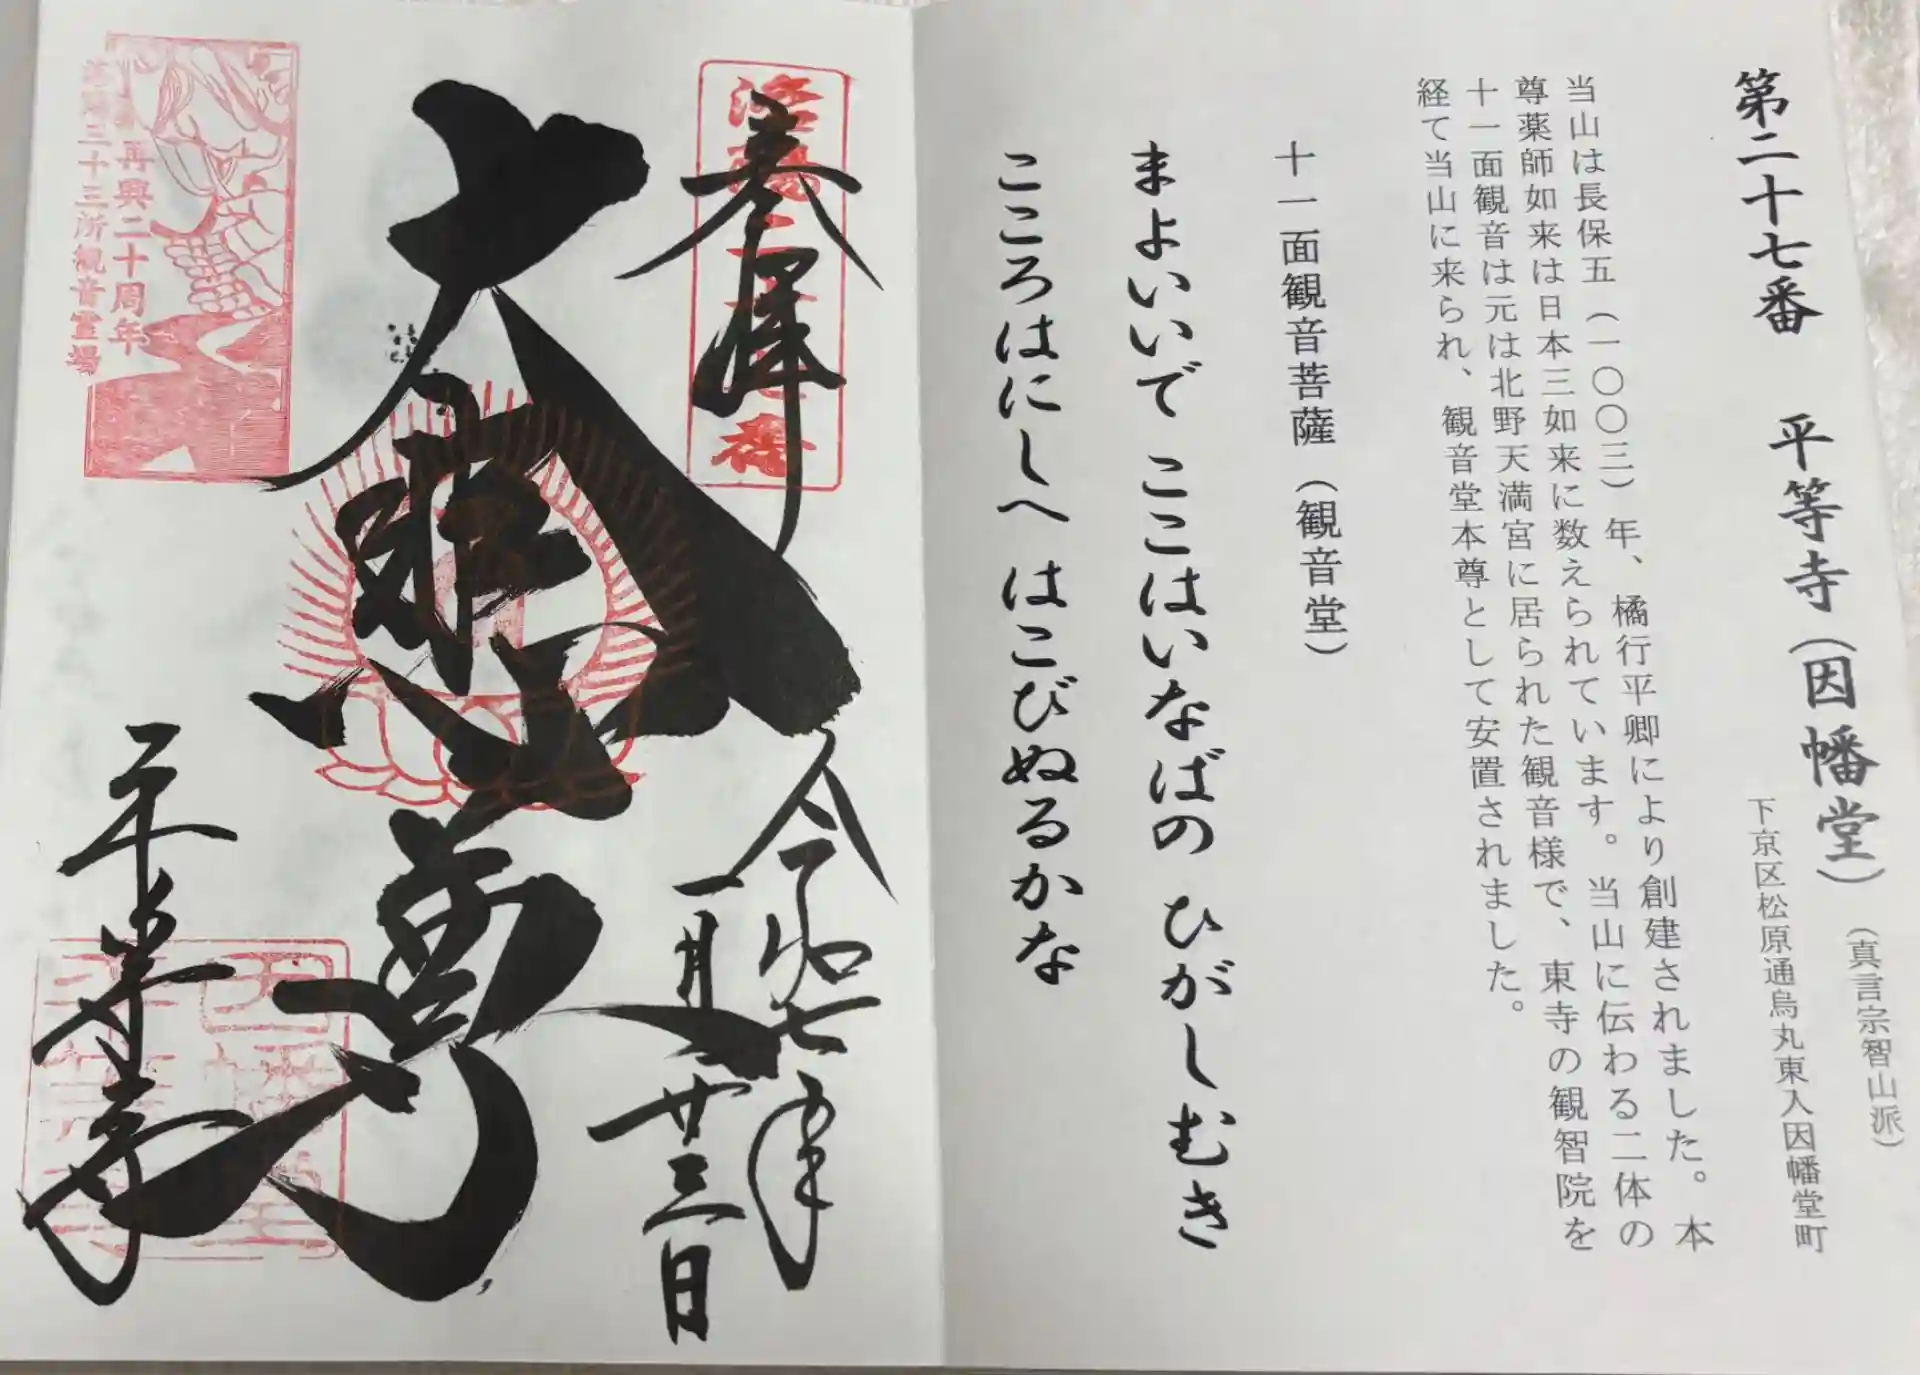 第二十七番 平等寺（因幡堂）（真言宗智山派）
下京区松原通烏丸東入因幡堂町
当山は長保五（一〇〇三）年、橘行平卿により創建されました。本
尊薬師如来は日本三如来に数えられています。当山に伝わる二体の
十一面観音は元は北野天満宮に居られた観音様で、東寺の観智院を
経て当山に来られ、観音堂本尊として安置されました。
十一面観音菩薩（観音堂）
まよいいで ここはいなばの ひがしむき
こころはにしへ はこびぬるかな
奉拝
令和七年
一月廿三日
大悲尊
平等寺
再興二十周年
洛陽三十三所観音霊場